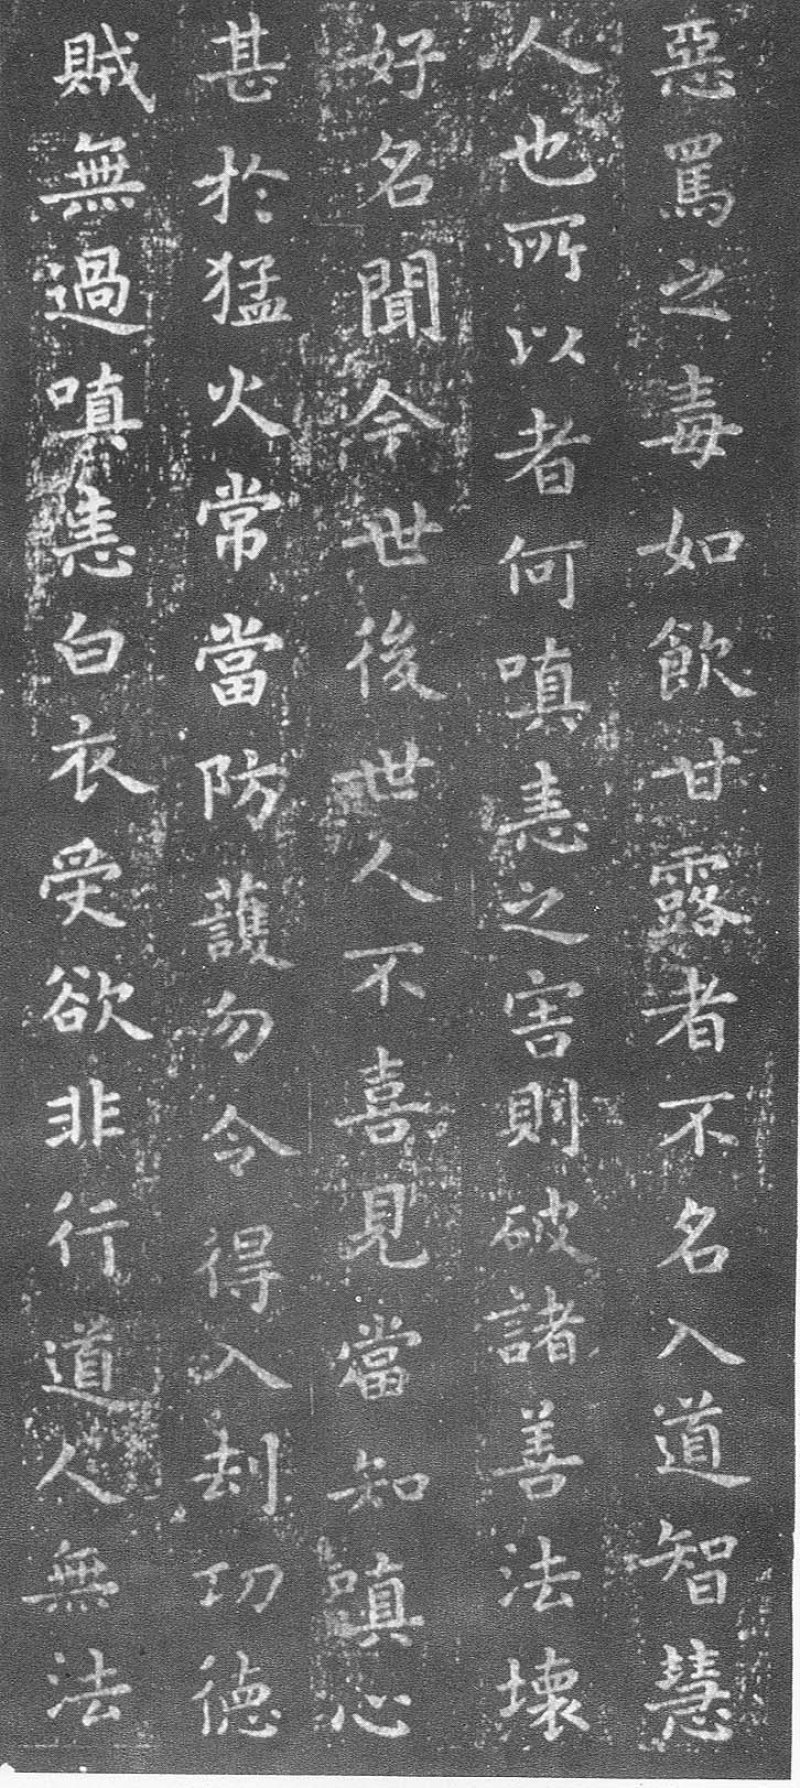 惡罵之毒如飲甘露者不名入道智慧
人也所以者何嗔恚之害則破諸善法壞
好名聞今世後世人不喜見當知嗔心
甚於猛火常當防護勿令得入刧功德
賊無過嗔恚白衣受欲非行道人無法